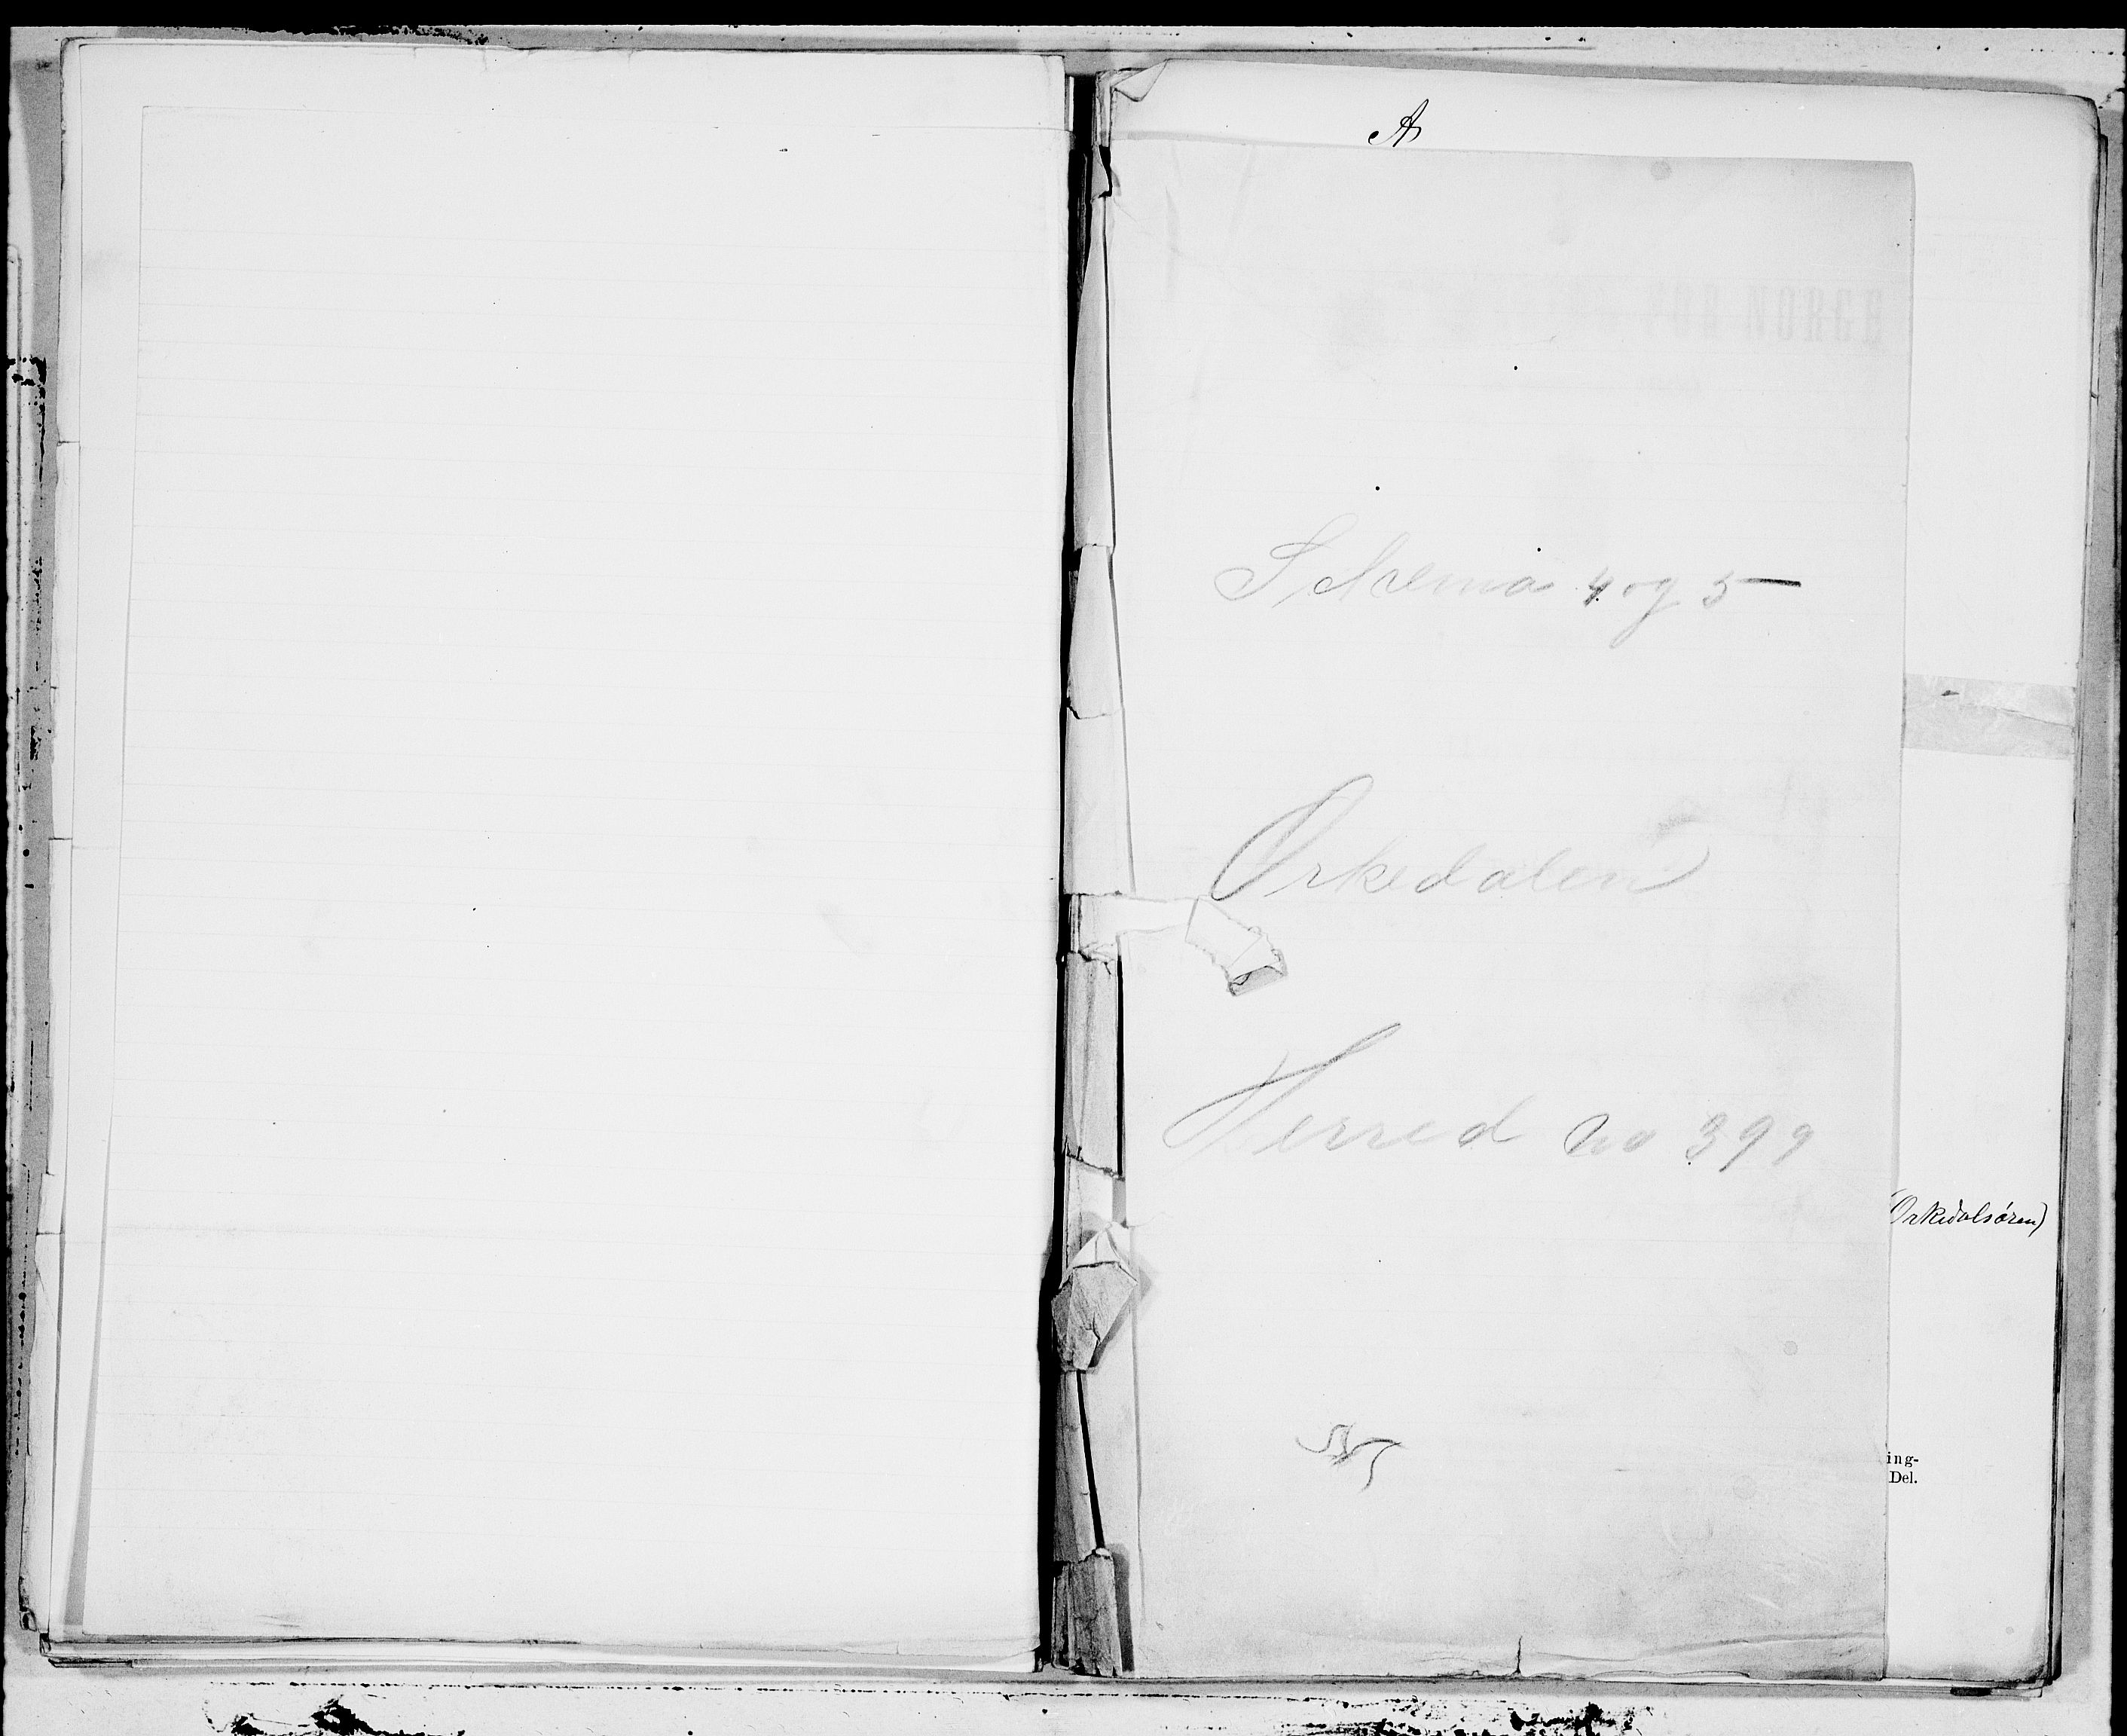 A
FOR NORGE
Schema 4 og 5
Orkedalen
Herred no 399
(Orkedalsøren)
ing-
Del.